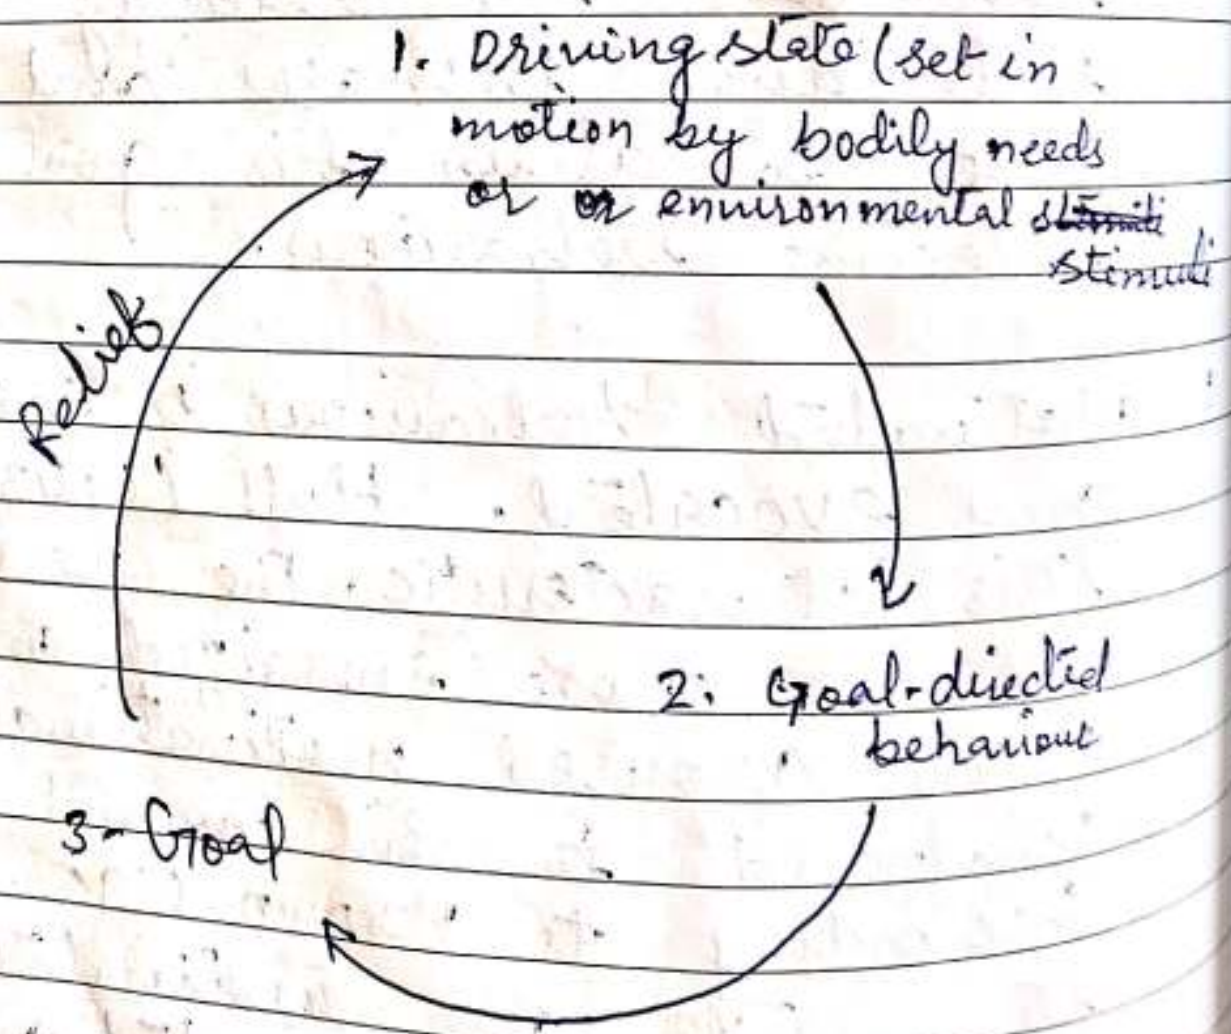 1. Driving state (set in
motion by bodily needs
or or environmental stimuli
stimuli
Relief
2. Goal-directed
behaviour
3- Goal